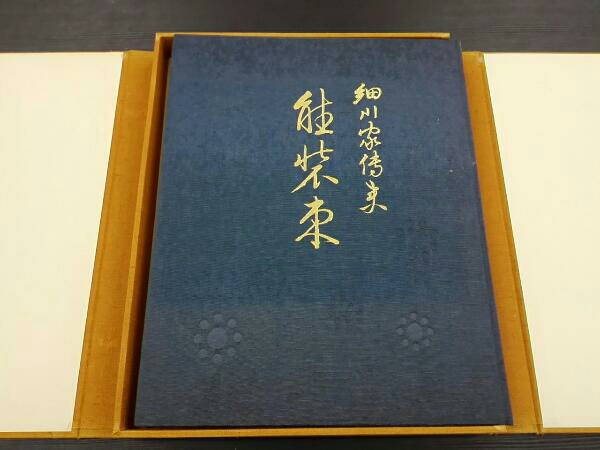 細川家傳来
能装束